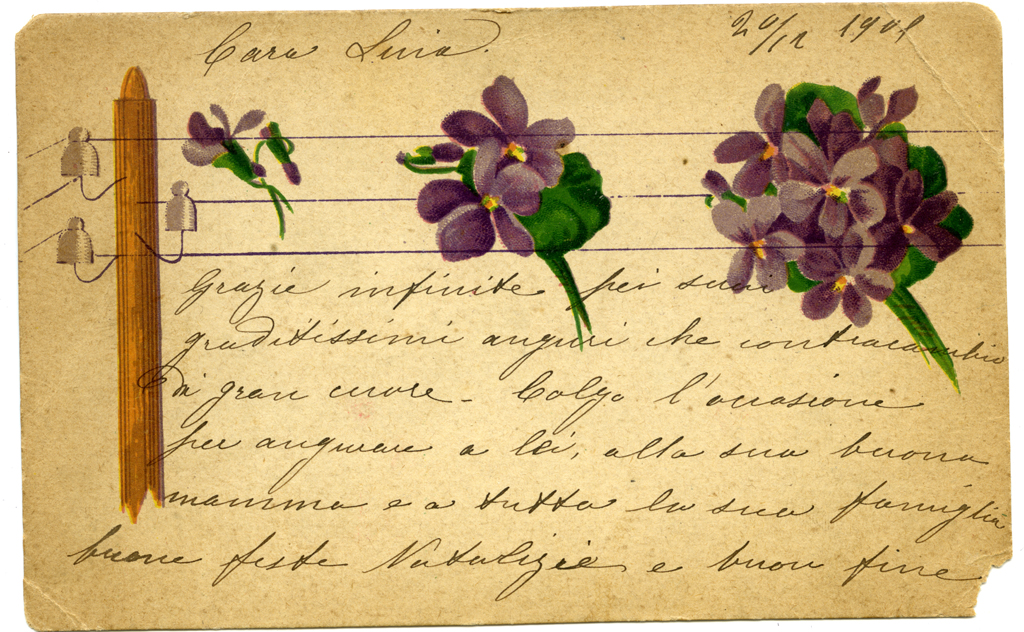 Cara Livia. 20/12 1901
Grazie infinite per suoi
graditissimi auguri che contracambio
di gran cuore - Colgo l'occasione
per augurare a lei, alla sua buona
mamma e a tutta la sua famiglia
buone feste Natalizie e buon fine